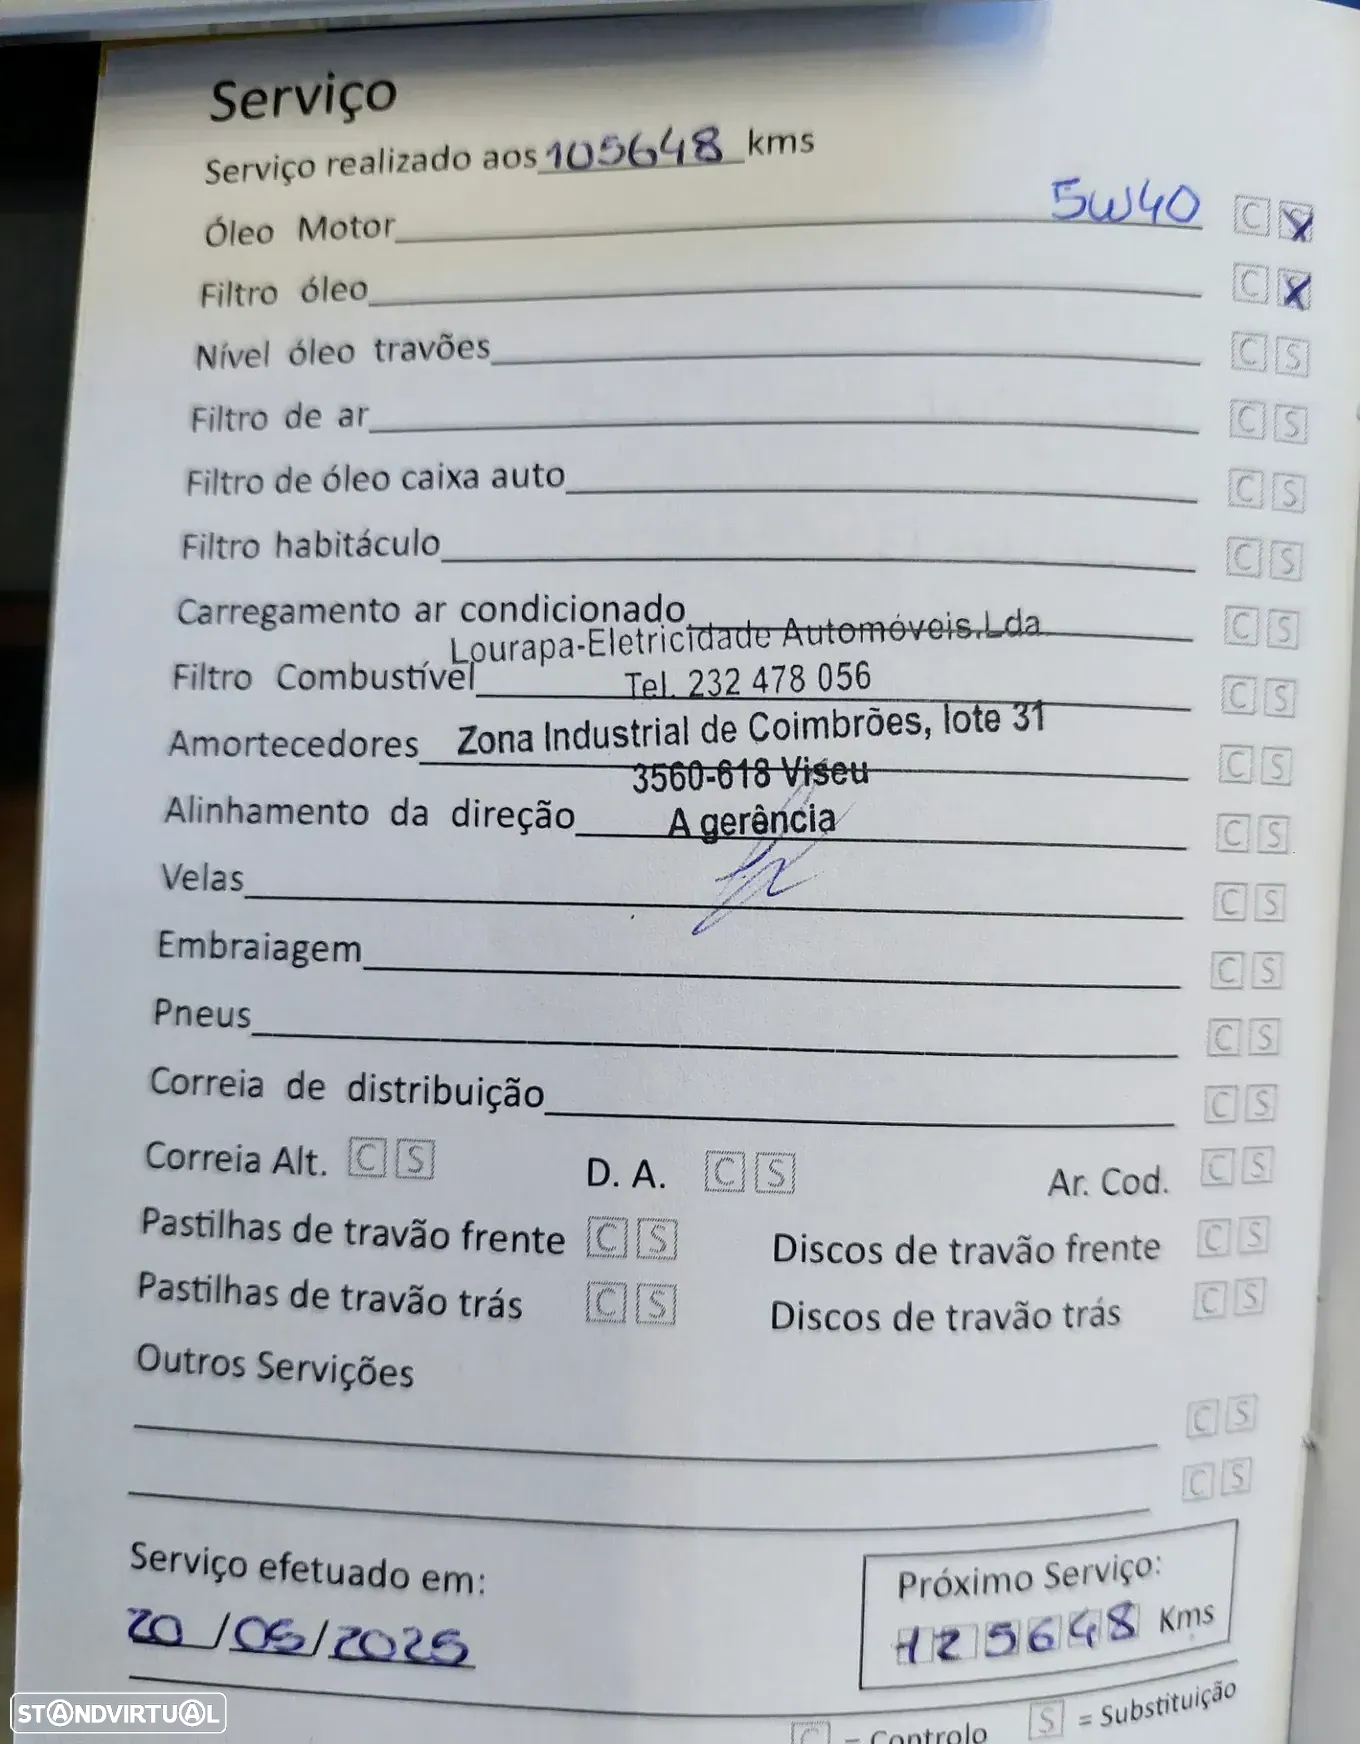 Serviço
Serviço realizado aos 105648 kms
Óleo Motor 5W40 C S
Filtro óleo C S
Nível óleo travões C S
Filtro de ar C S
Filtro de óleo caixa auto C S
Filtro habitáculo C S
Carregamento ar condicionado C S
Lourapa-Eletricidade Automóveis,Lda
Filtro Combustível C S
Tel. 232 478 056
Amortecedores C S
Zona Industrial de Coimbrões, lote 31
3560-618 Viseu
Alinhamento da direção C S
A gerência
Velas C S
Embraiagem C S
Pneus C S
Correia de distribuição C S
Correia Alt. C S D. A. C S Ar. Cod. C S
Pastilhas de travão frente C S Discos de travão frente C S
Pastilhas de travão trás C S Discos de travão trás C S
Outros Servições
C S
C S
Serviço efetuado em:
20/05/2025
Próximo Serviço:
125648 Kms
C = Controlo S = Substituição
STANDVIRTUAL